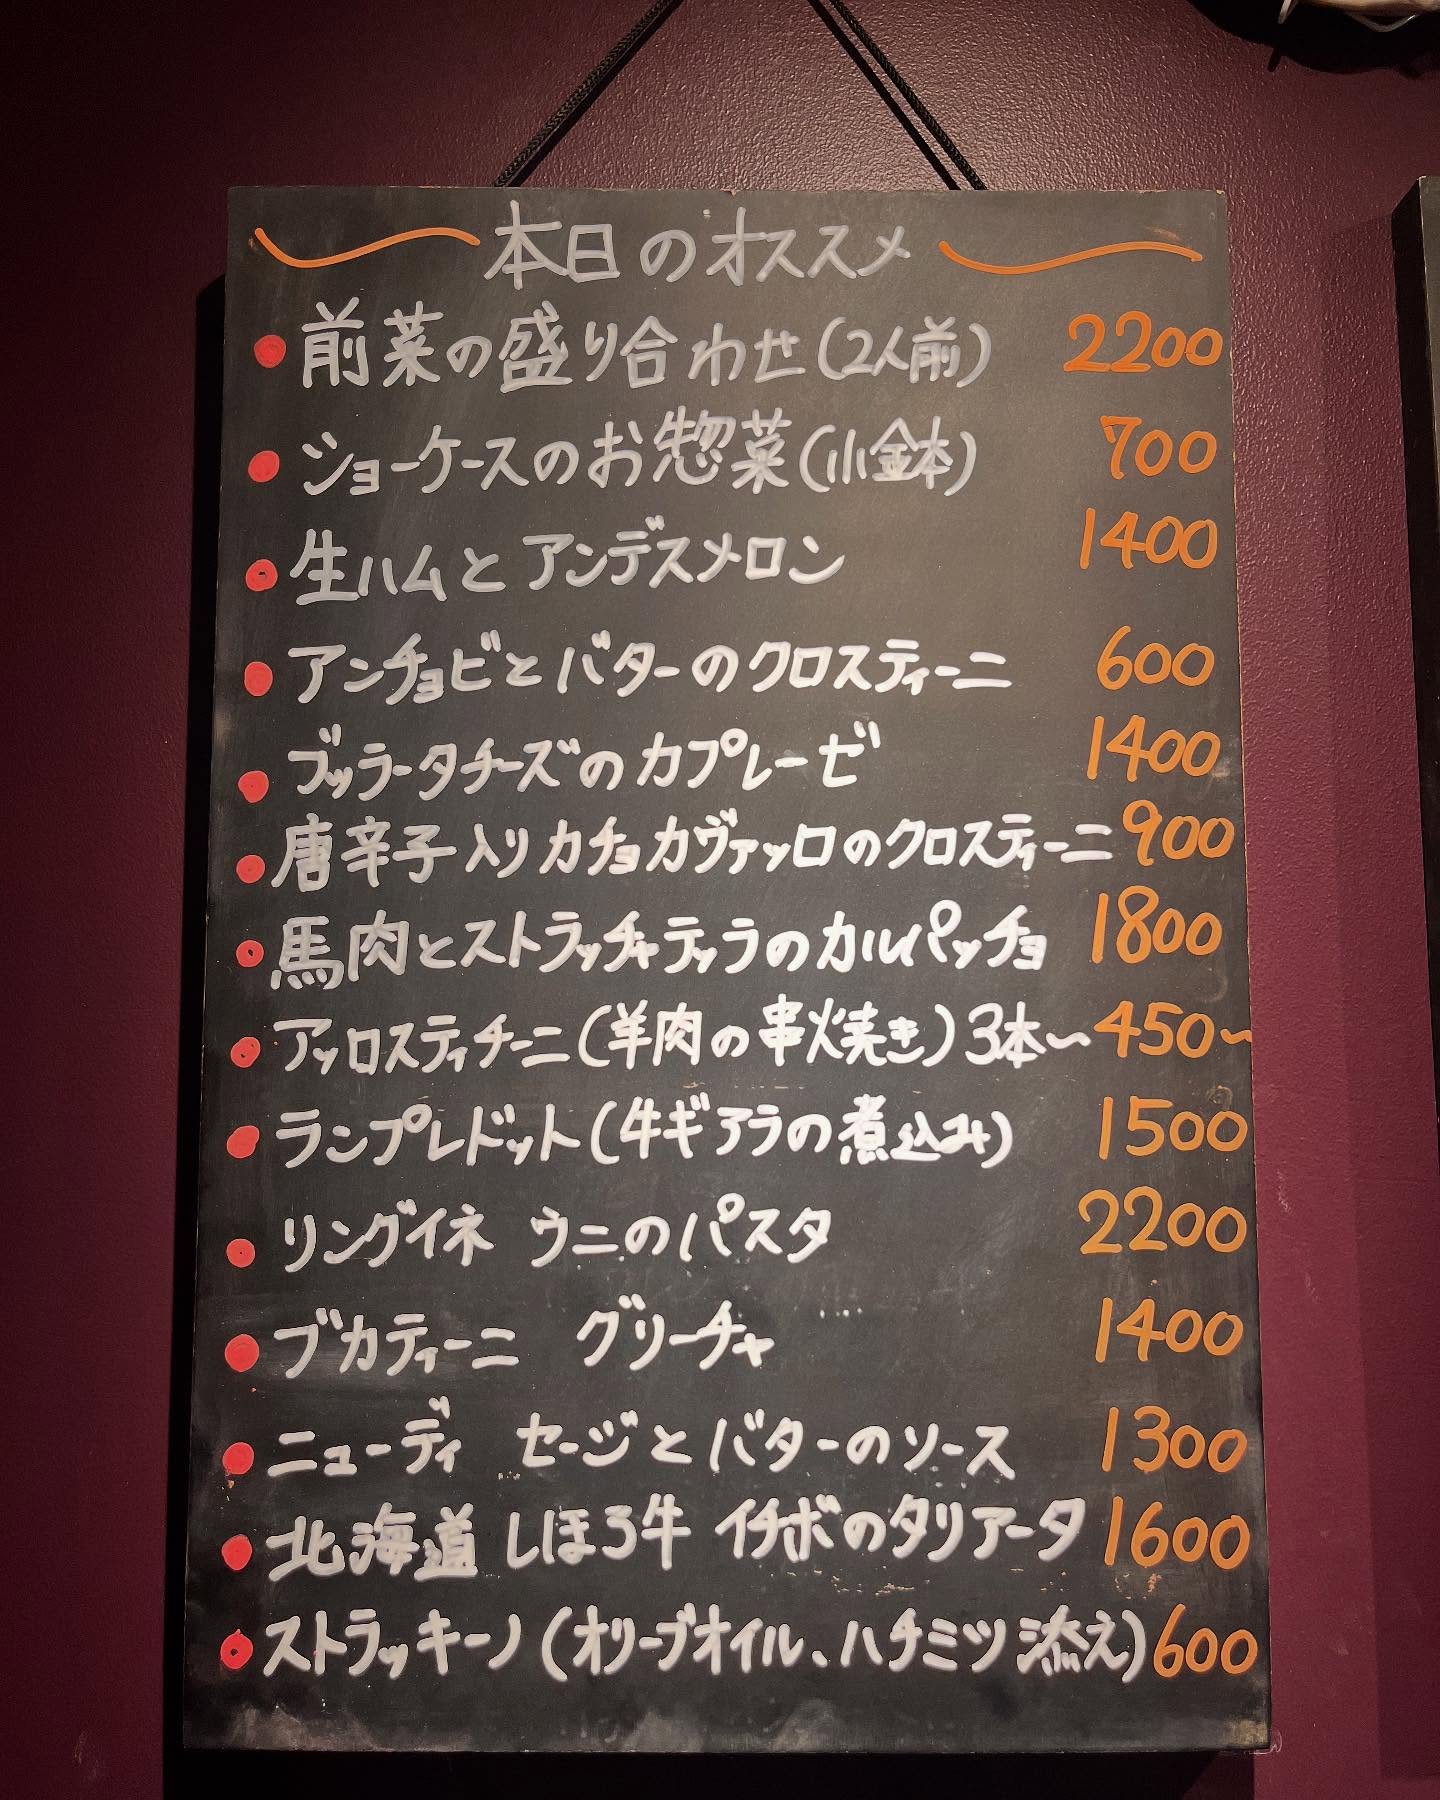 本日のオススメ
前菜の盛り合わせ(2人前) 2200
ショーケースのお惣菜(小鉢) 700
生ハムとアンデスメロン 1400
アンチョビとバターのクロスティーニ 600
ブッラータチーズのカプレーゼ 1400
唐辛子入りカチョカヴァッロのクロスティーニ 900
馬肉とストラッチャテッラのカルパッチョ 1800
アッロスティチーニ(羊肉の串焼き)3本〜 450〜
ランプレドット(牛ギアラの煮込み) 1500
リングイネ ウニのパスタ 2200
ブカティーニ グリーチャ 1400
ニューディ セージとバターのソース 1300
北海道 しほろ牛 イチボのタリアータ 1600
ストラッキーノ(オリーブオイル、ハチミツ添え) 600